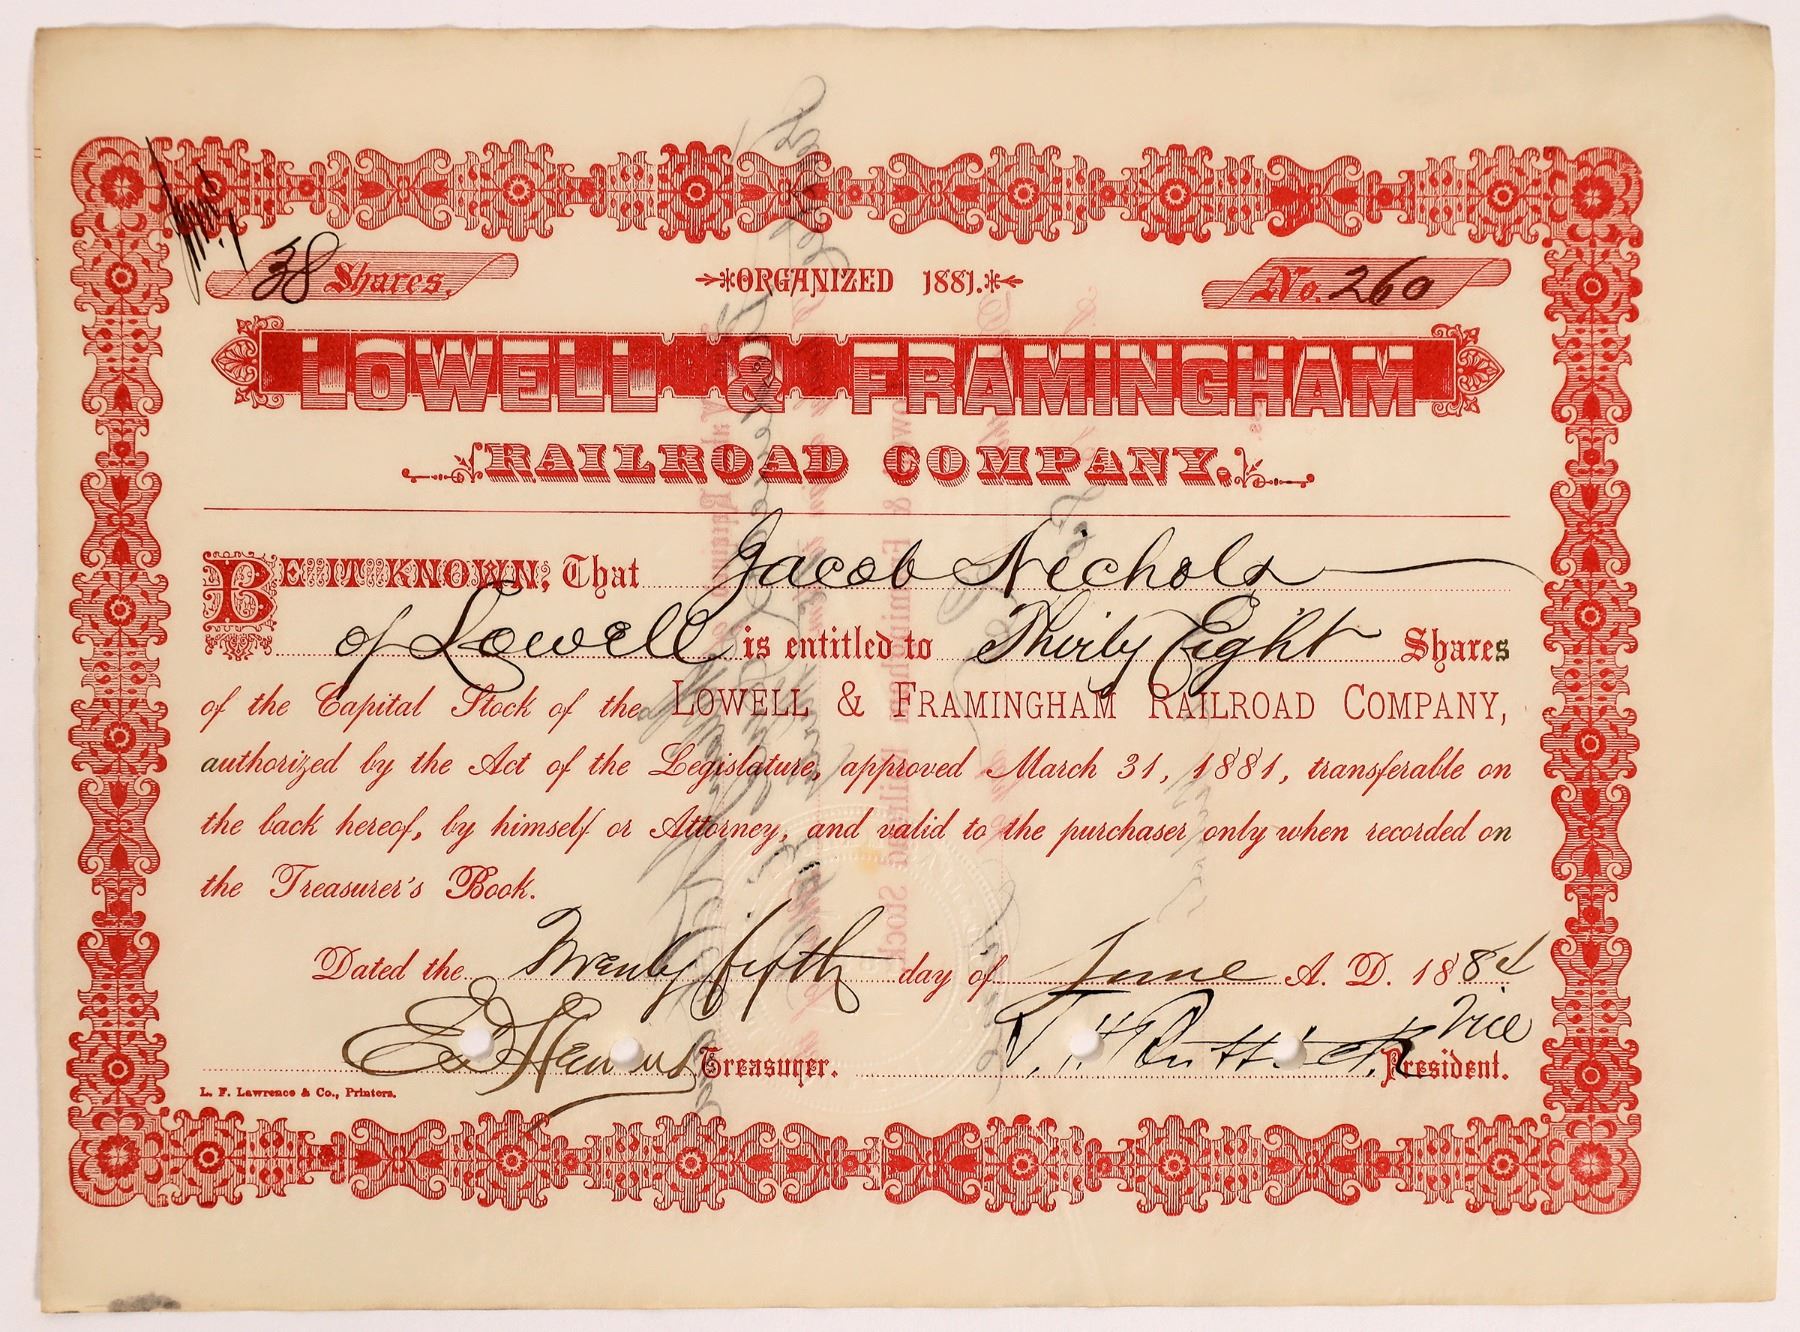 38 Shares.
ORGANIZED 1881.
No. 260
LOWELL & FRAMINGHAM
RAILROAD COMPANY.
BE IT KNOWN, That Jacob Nichols
of Lowell is entitled to Thirty Eight Shares
of the Capital Stock of the LOWELL & FRAMINGHAM RAILROAD COMPANY,
authorized by the Act of the Legislature, approved March 31, 1881, transferable on
the back hereof, by himself or Attorney, and valid to the purchaser only when recorded on
the Treasurer's Book.
Dated the Twenty fifth day of June A. D. 1884
Treasurer.
Vice
President.
L. F. Lawrence & Co., Printers.